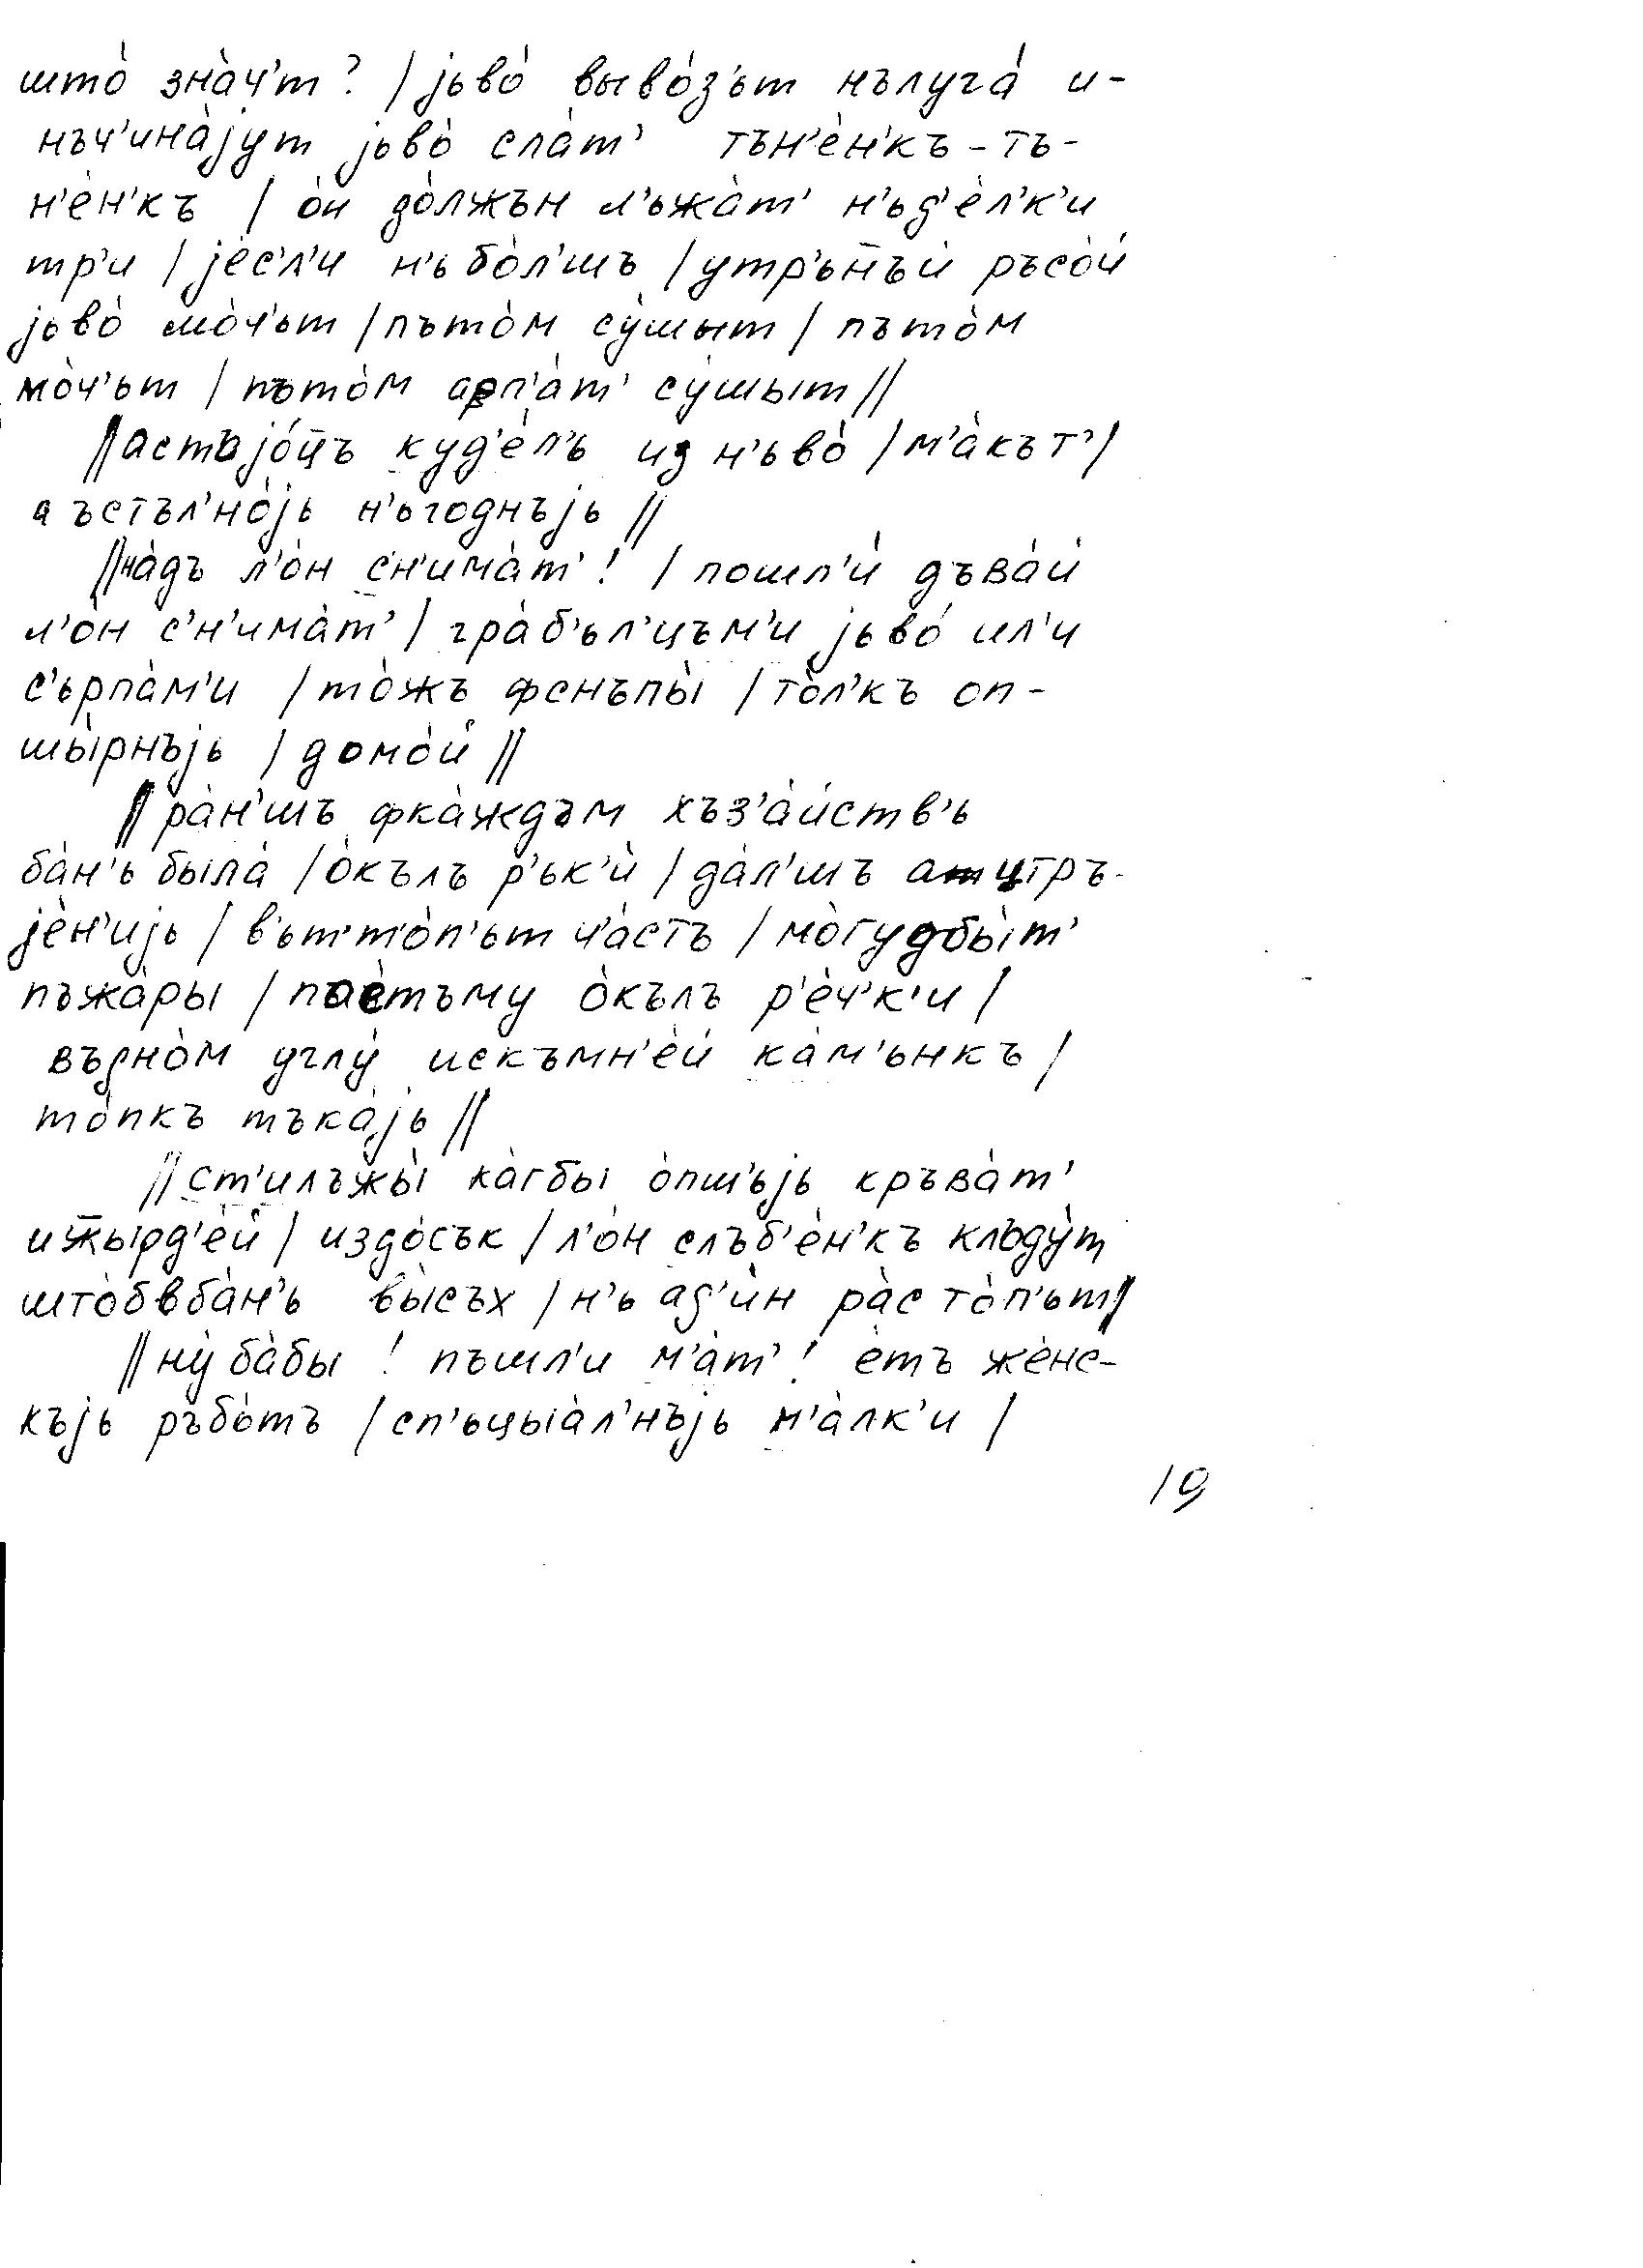 што́ зна̀ч'т? / jьво́ выво́з'ьт нълуга́ и-
нъч'ина̀jут jьво̀ сла̀т' тън'ѐн'къ-тъ-
н'ѐн'къ / о̀н до̀лжън л'ьжа̀т' н'ьд'ѐл'к'и
тр'и / jѐс'л'и н'ьбо̀л'шъ / утр'ьн̄ъй ръсо̀й
jьво̀ мо̀ч'ьт / пъто̀м су̀шыт / пъто̀м
мо̀ч'ьт / пъто̀м ап'а̀т' су̀шыт //
// астъjо́ц̄ъ куд'ѐл'ь из н'ьво̀ / м'а̀кът'/
а ъстъл'но̀jь н'ьгоднъjь //
// на̀дъ л'о̀н с'н'има̀т'! / пошл'и́ дъва́й
л'о̀н с'н'има̀т' / гра̀б'ьл'цъм'и jьво́ ил'и
с'ьрпа̀м'и / то̀жъ фснъпы̀ / то̀л'къ оп-
шы̀рнъjь / домо̀й //
// ра̀н'шъ фка̀ждъм хъз'а̀йств'ь
ба̀н'ь была̀ / о̀кълъ р'ьк'ѝ / да̀л'шъ атцтръ-
jѐн'иjь / в'ьт'то̀п'ьт ч'а̀стъ / мо̀гудбы̀т'
пъжа̀ры / паѐтъму о̀кълъ р'ѐч'к'и /
въдно̀м углу̀ искъмн'ѐй ка̀м'ьнкъ /
то̀пкъ тъка̀jь //
// ст'илъжы̀ ка̀гбы о̀пш'ьjь кръва̀т'
иж̄ырд'ѐй / издо̀сък / л'о̀н слъб'ѐн'къ клъду̀т
што̀бвба̀н'ь вы̀съх / н'ь ад'ѝн ра̀с то̀п'ьт //
// ну̀ ба̀бы! пъшл'и м'а̀т'! ѐтъ жѐнс-
къjь ръбо̀тъ / сп'ьцыа̀л'нъjь м'а̀лк'и /
19